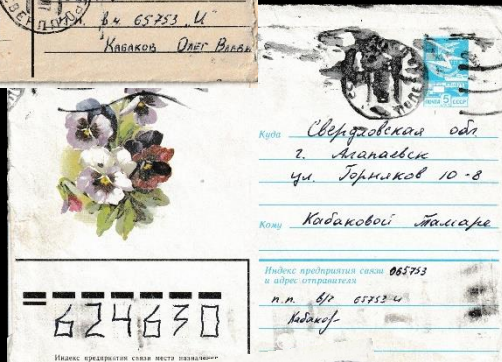 п. вч 65753 "И"
Кабаков Олег Влади
ПОЧТА 5 СССР
Куда Свердловская обл
г. Алапаевск
ул. Горняков 10-8
Кому Кабаковой Тамаре
Индекс предприятия связи 065753
и адрес отправителя
п.п. в/ч 65753-и
Кабаков
624630
Индекс предприятия связи места назначения